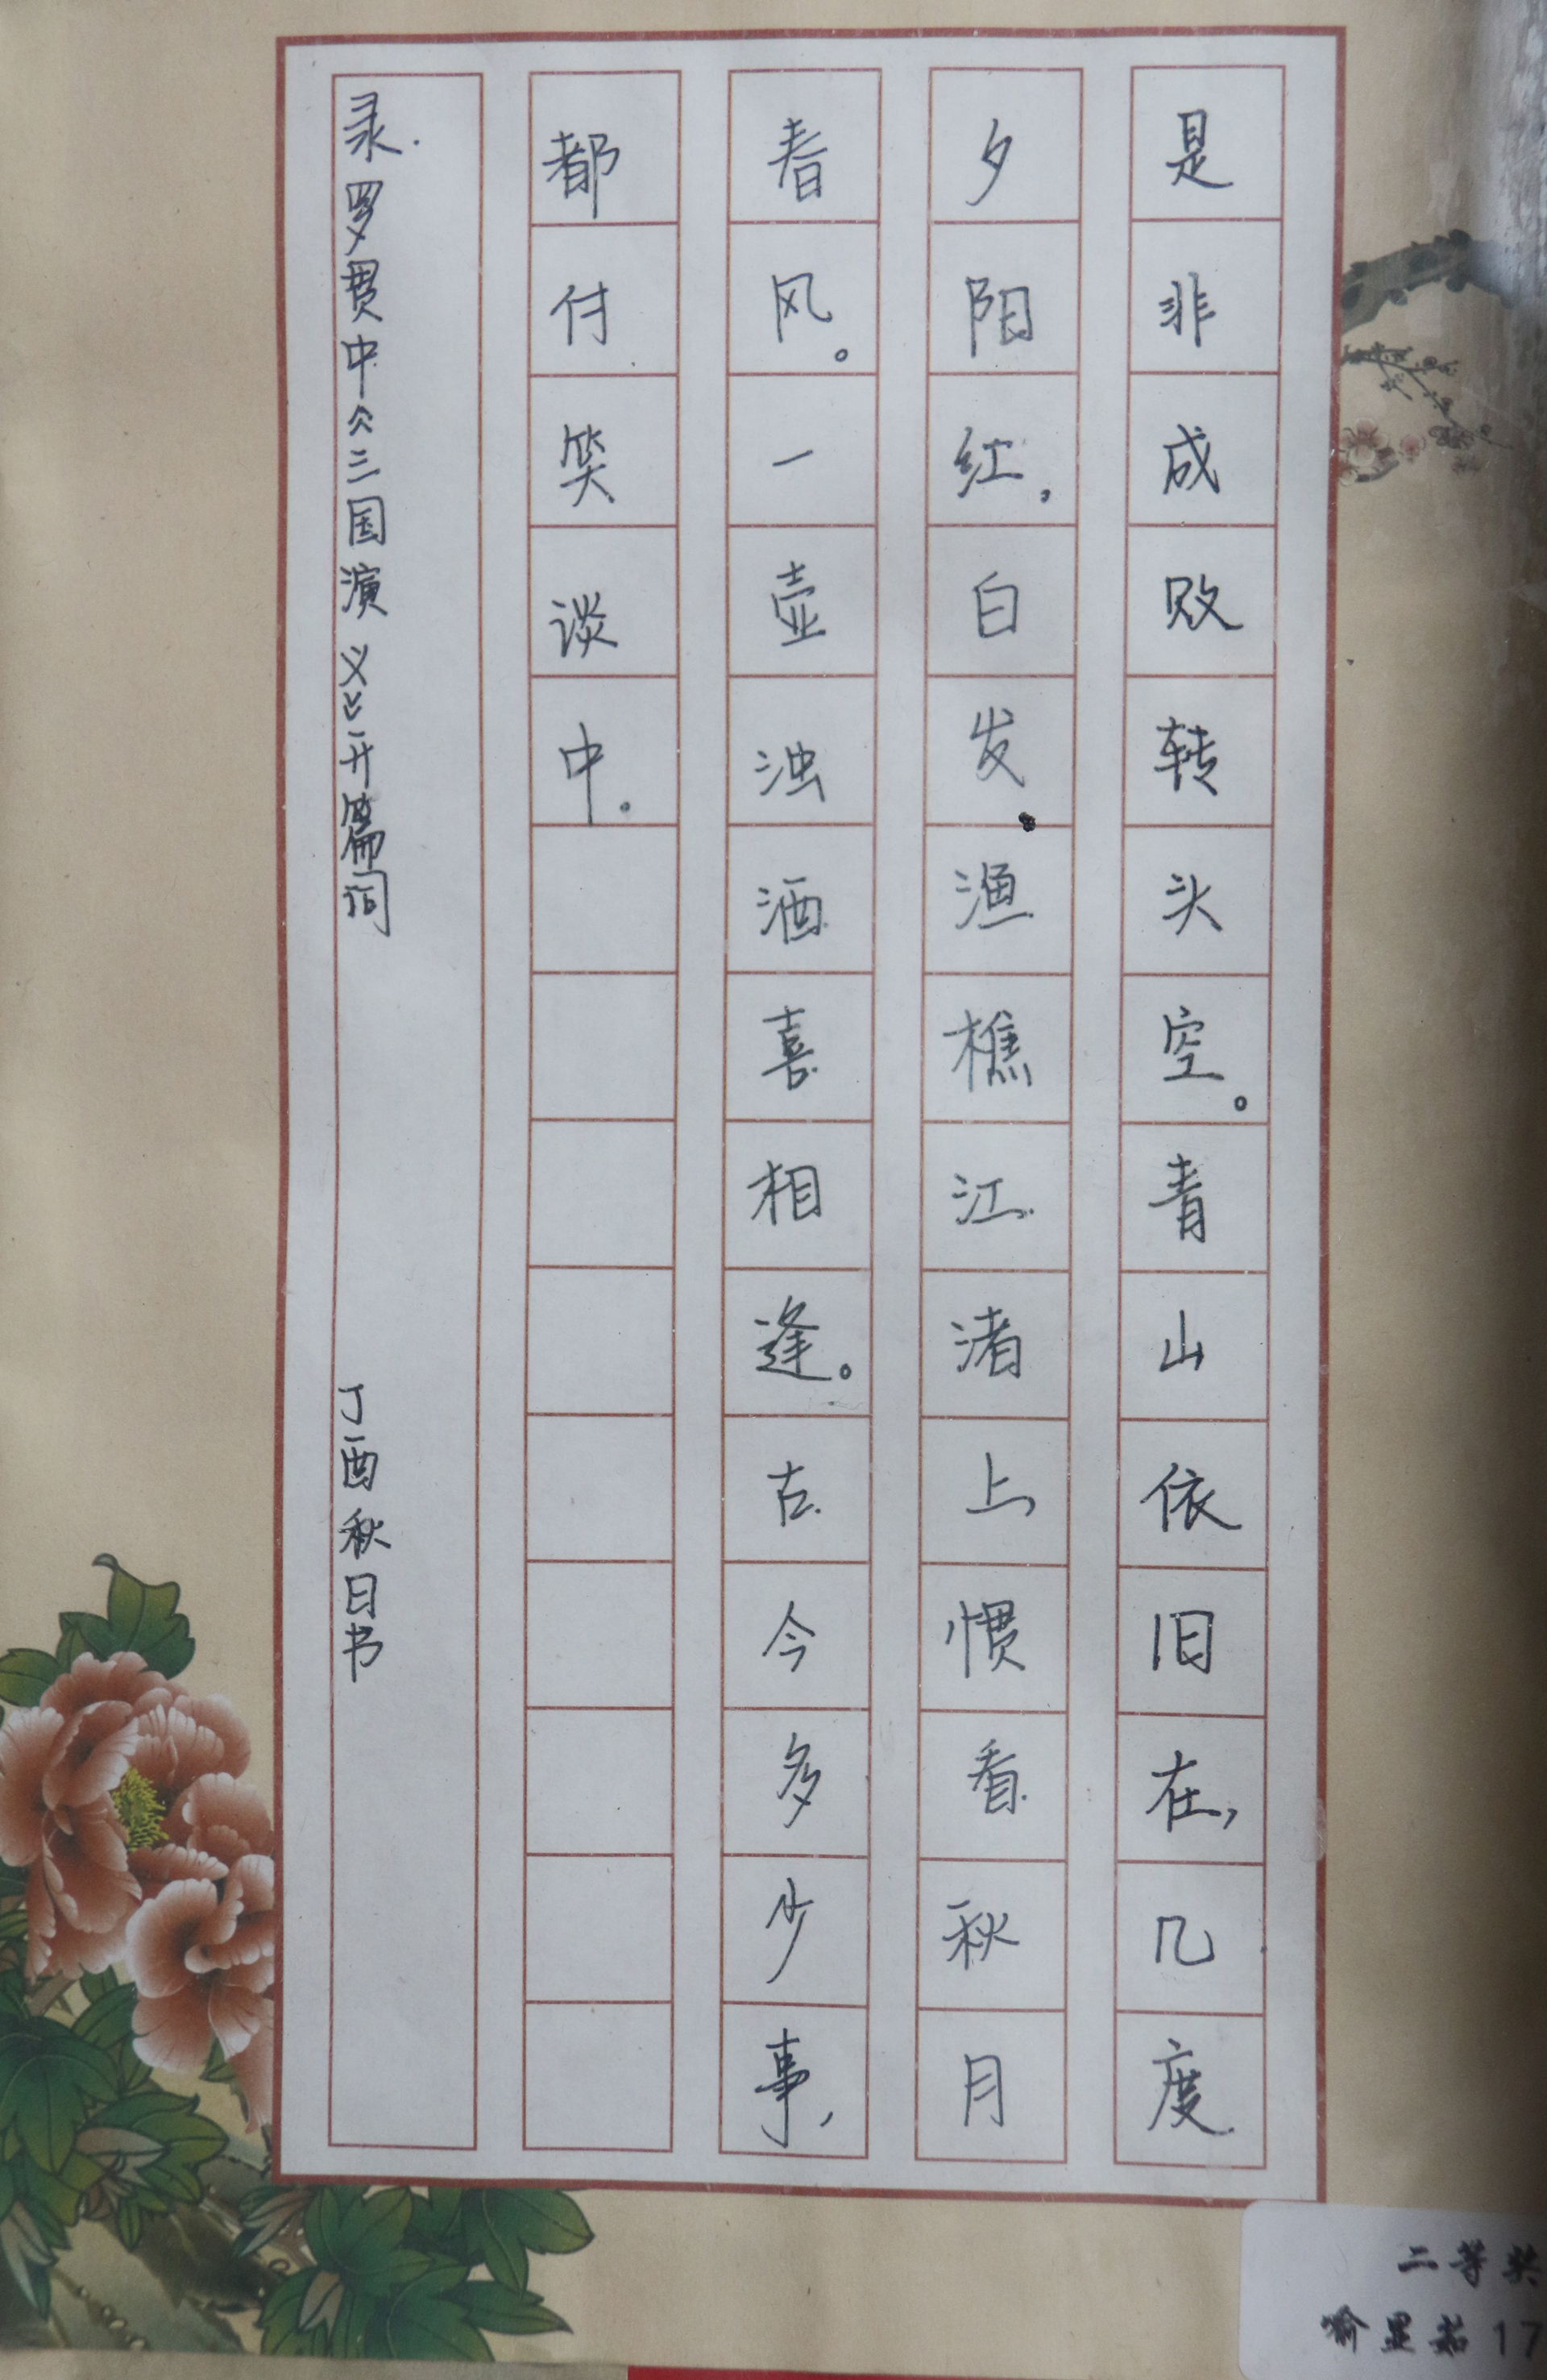 是非成败转头空。青山依旧在,几度
夕阳红,白发渔樵江渚上,惯看秋月
春风。一壶浊酒喜相逢。古今多少事,
都付笑谈中。
录罗贯中《三国演义》开篇词 丁酉秋日书
二等奖
17